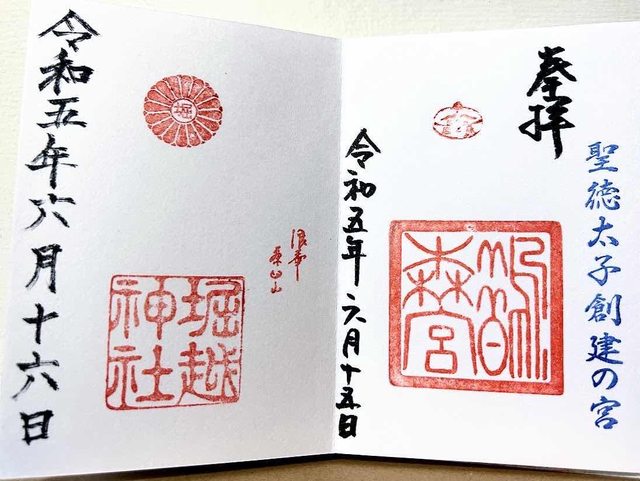 聖徳太子創建の宮
奉拝
鵲
森宮
令和五年六月十五日
浪華
茶臼山
堀
堀越
神社
令和五年六月十六日